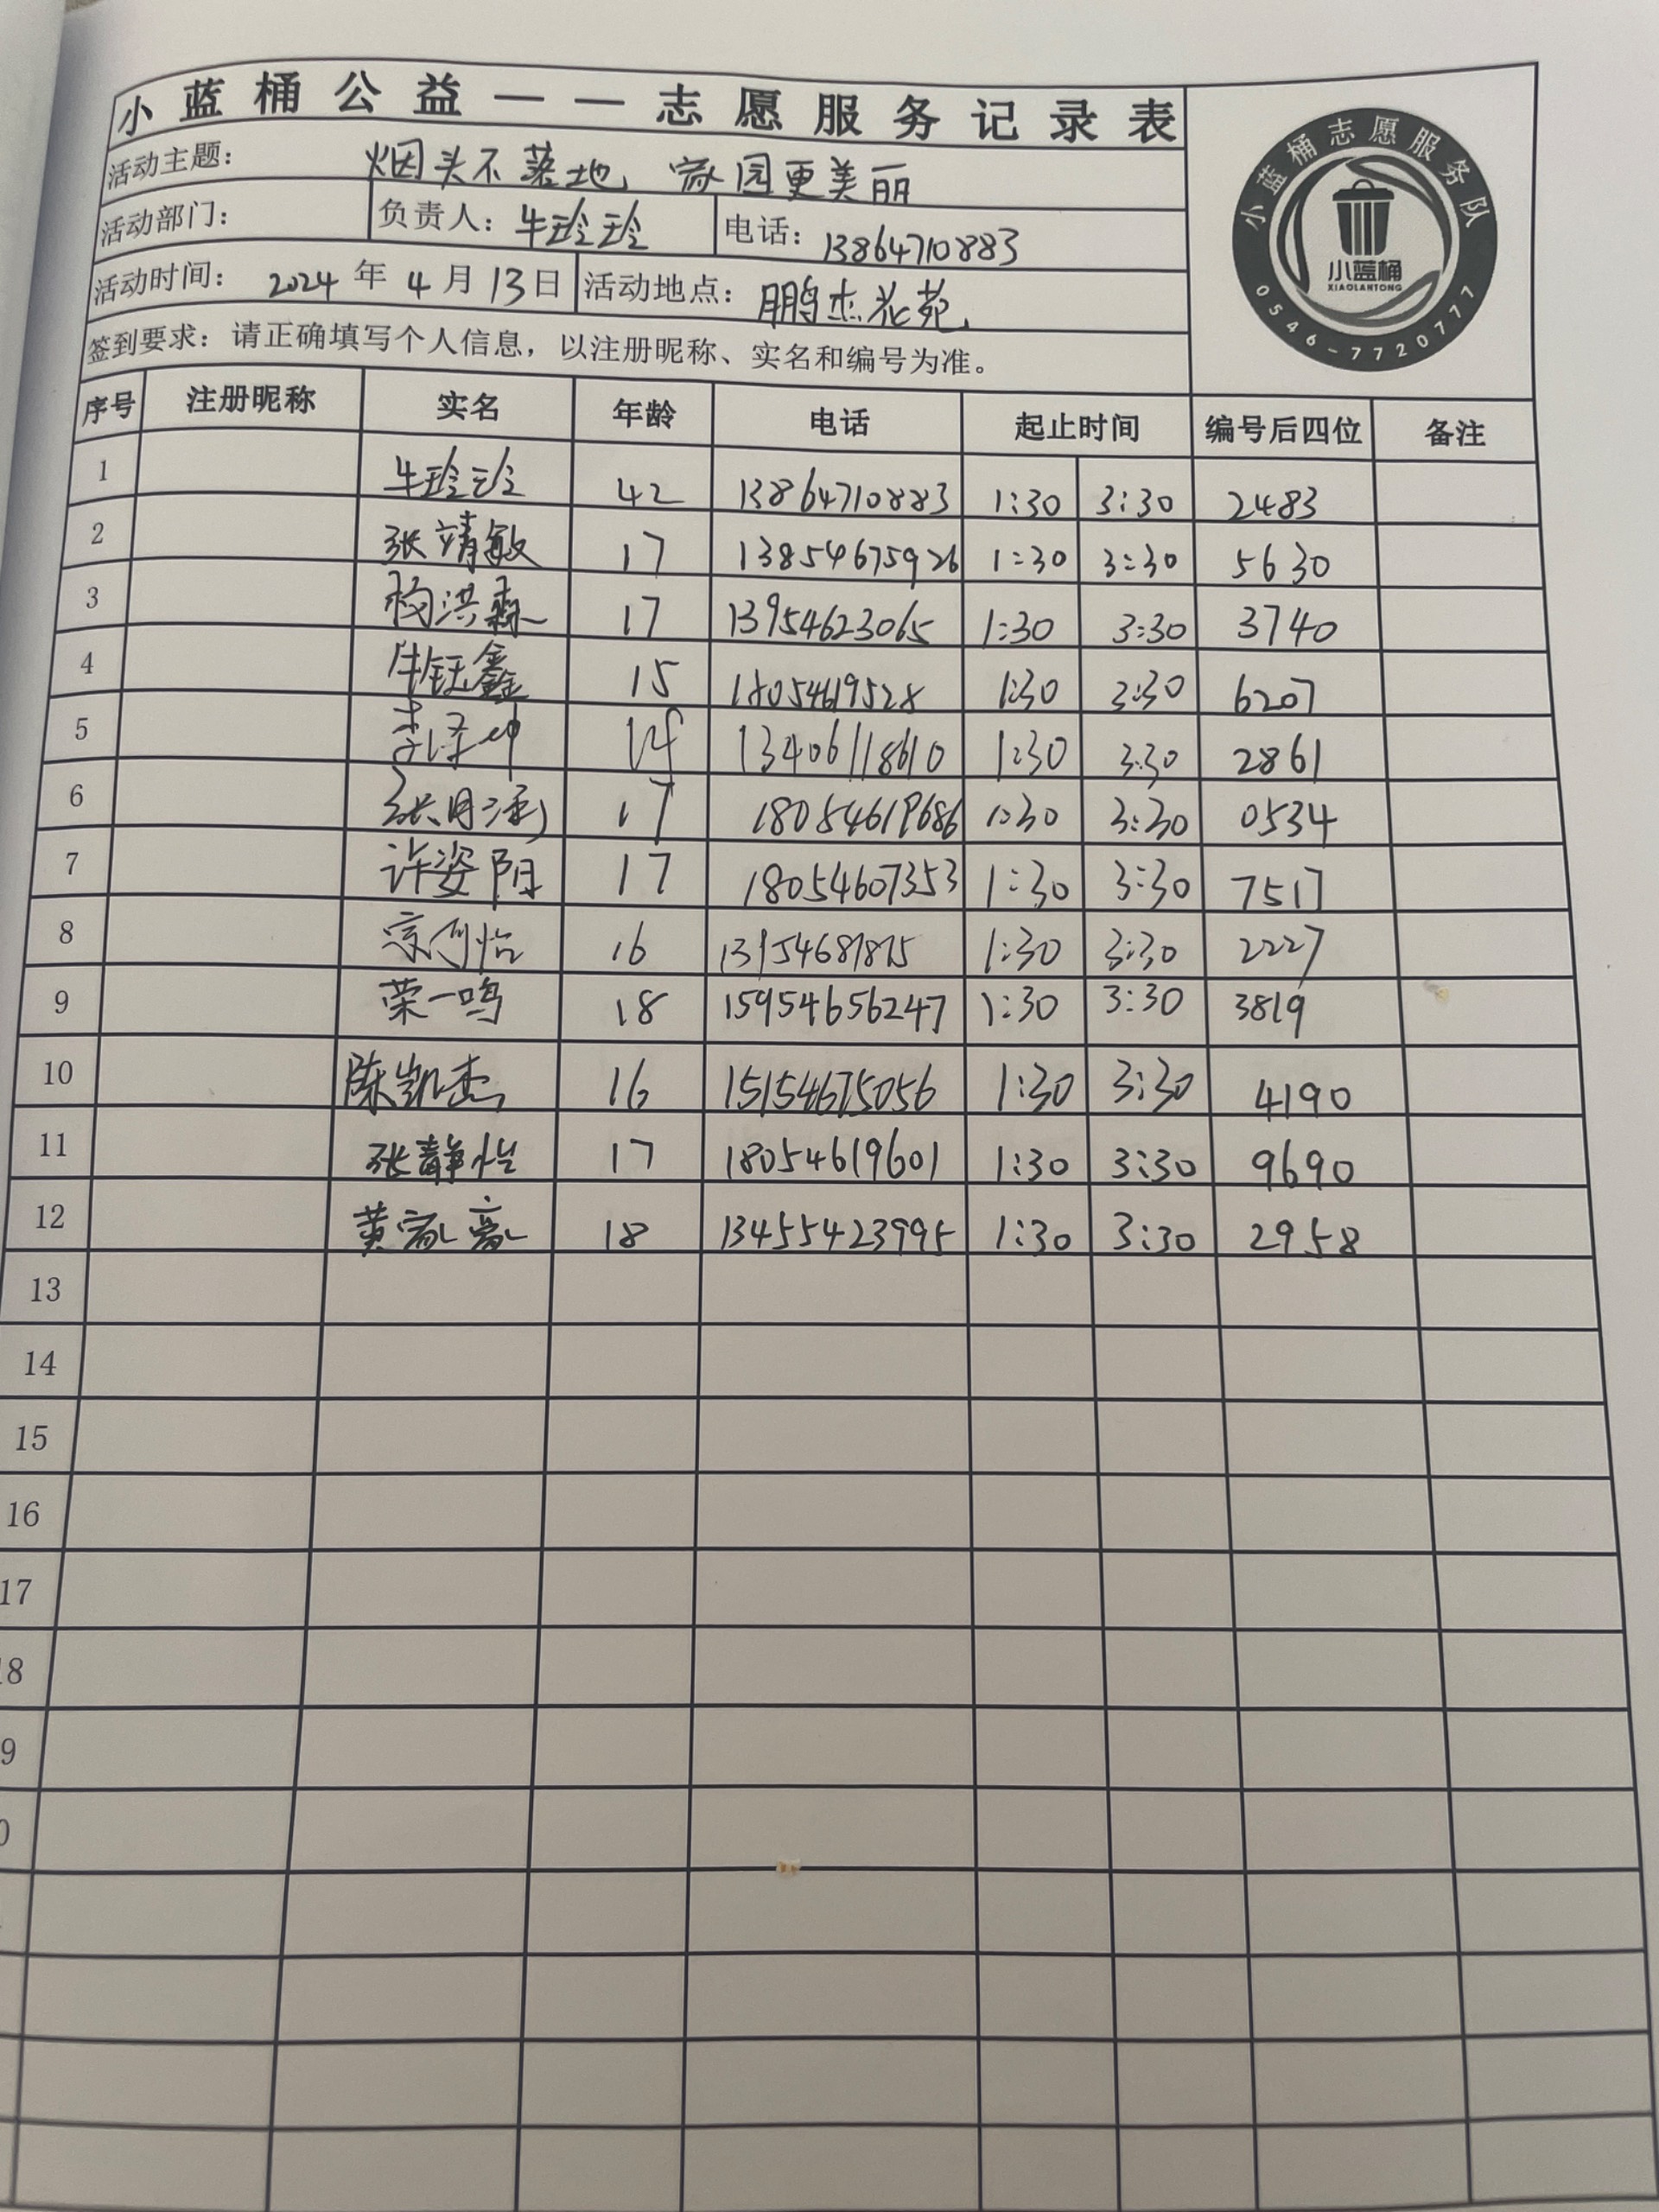 小蓝桶公益——志愿服务记录表
活动主题： 烟头不落地，家园更美丽
活动部门： 负责人：牛玲玲 电话：13864710883
活动时间： 2024 年 4 月 13 日 活动地点：鹏杰花苑
签到要求：请正确填写个人信息，以注册昵称、实名和编号为准。
小蓝桶志愿服务队
小蓝桶
XIAOLANTONG
0546-7720777
序号 注册昵称 实名 年龄 电话 起止时间 编号后四位 备注
1 牛玲玲 42 13864710883 1:30 3:30 2483
2 张靖敏 17 13854675926 1:30 3:30 5630
3 杨洪森 17 13954623065 1:30 3:30 3740
4 牛钰鑫 15 18054619528 1:30 3:30 6207
5 李泽坤 14 13406118610 1:30 3:30 2861
6 张月 17 18054619686 1:30 3:30 0534
7 许姿阳 17 18054607353 1:30 3:30 7517
8 宗 怡 16 1:30 3:30 2227
9 荣一鸣 18 15954656247 1:30 3:30 3819
10 陈凯杰 16 15154675056 1:30 3:30 4190
11 张静怡 17 18054619601 1:30 3:30 9690
12 黄家豪 18 13455423995 1:30 3:30 2958
13
14
15
16
17
18
9
0